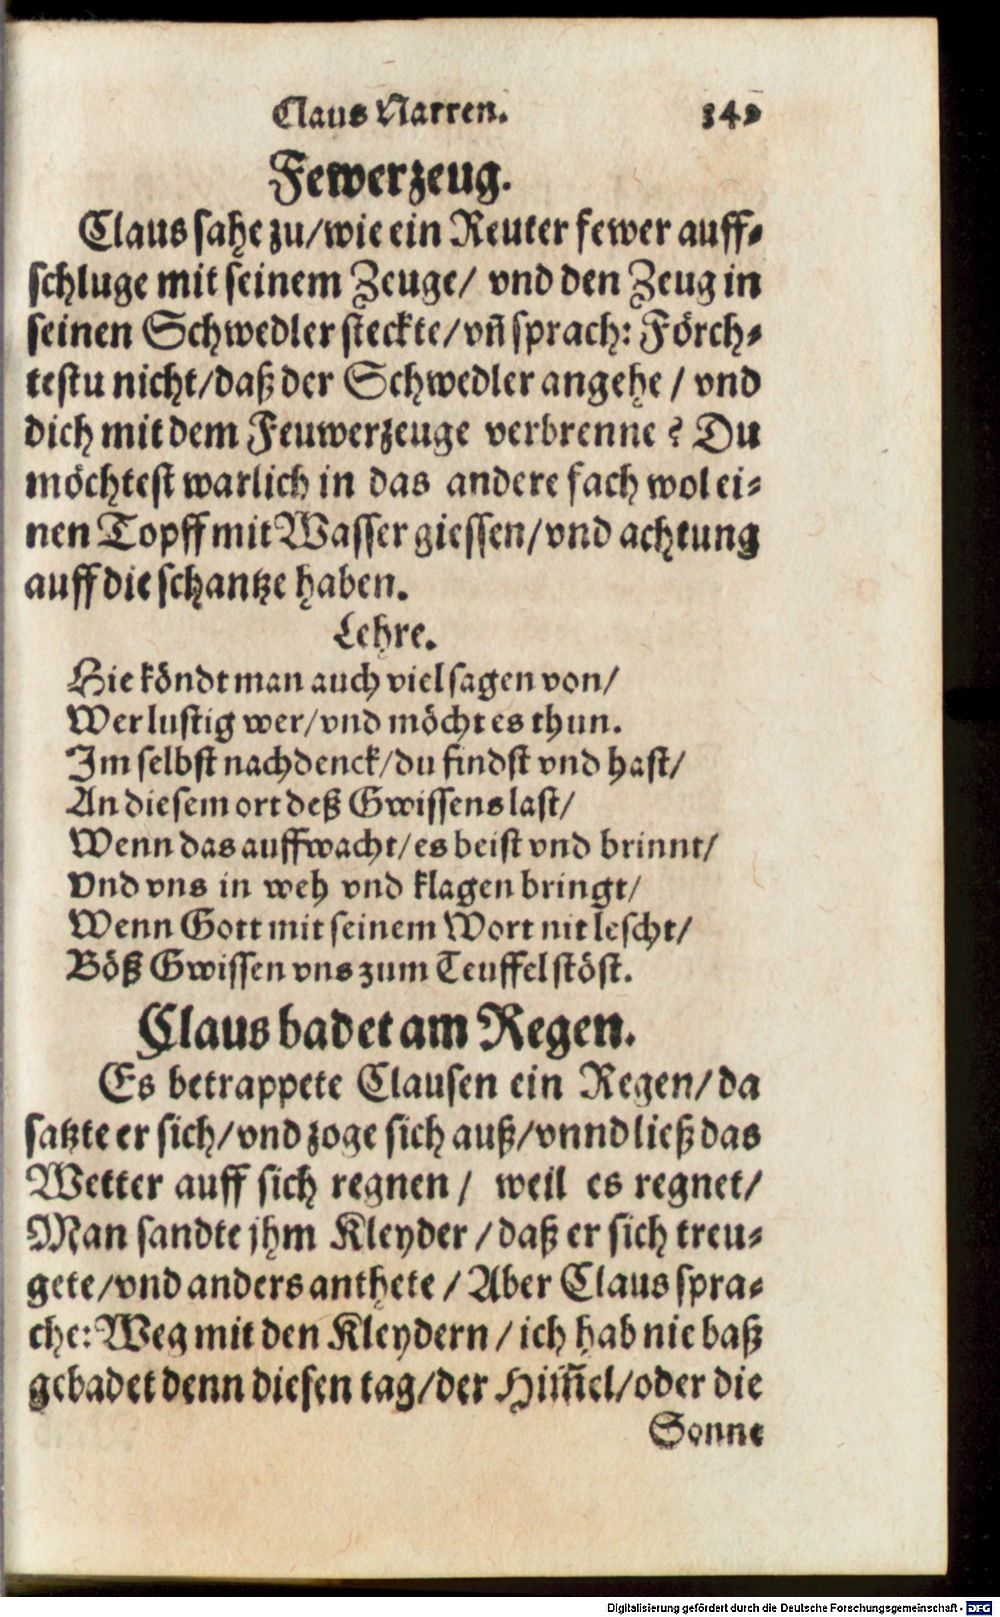 Claus Narren. 349
Fewerzeug.
Claus sahe zu/wie ein Reuter fewer auff-
schluge mit seinem Zeuge/ vnd den Zeug in
seinen Schwedler steckte/vñ sprach: Förch-
testu nicht/daß der Schwedler angehe / vnd
dich mit dem Feuwerzeuge verbrenne? Du
möchtest warlich in das andere fach wol ei-
nen Topff mit Wasser giessen/vnd achtung
auff die schantze haben.
Lehre.
Hie köndt man auch viel sagen von/
Wer lustig wer/vnd möcht es thun.
Im selbst nachdenck/du findst vnd hast/
An diesem ort deß Gwissens last/
Wenn das auffwacht/es beist vnd brinnt/
Vnd vns in weh vnd klagen bringt/
Wenn Gott mit seinem Wort nit lescht/
Böß Gwissen vns zum Teuffel stöst.
Claus badet am Regen.
Es betrappete Clausen ein Regen/da
satzte er sich/vnd zoge sich auß/vnnd ließ das
Wetter auff sich regnen/ weil es regnet/
Man sandte jhm Kleyder/daß er sich treu-
gete/vnd anders anthete/Aber Claus spra-
che: Weg mit den Kleydern/ich hab nie baß
gebadet denn diesen tag/der Him̃el/oder die
Sonne
Digitalisierung gefördert durch die Deutsche Forschungsgemeinschaft - DFG